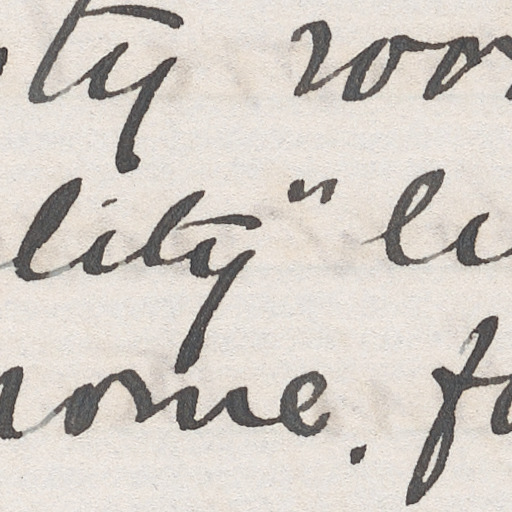 ty roo
lity" li
home. fo